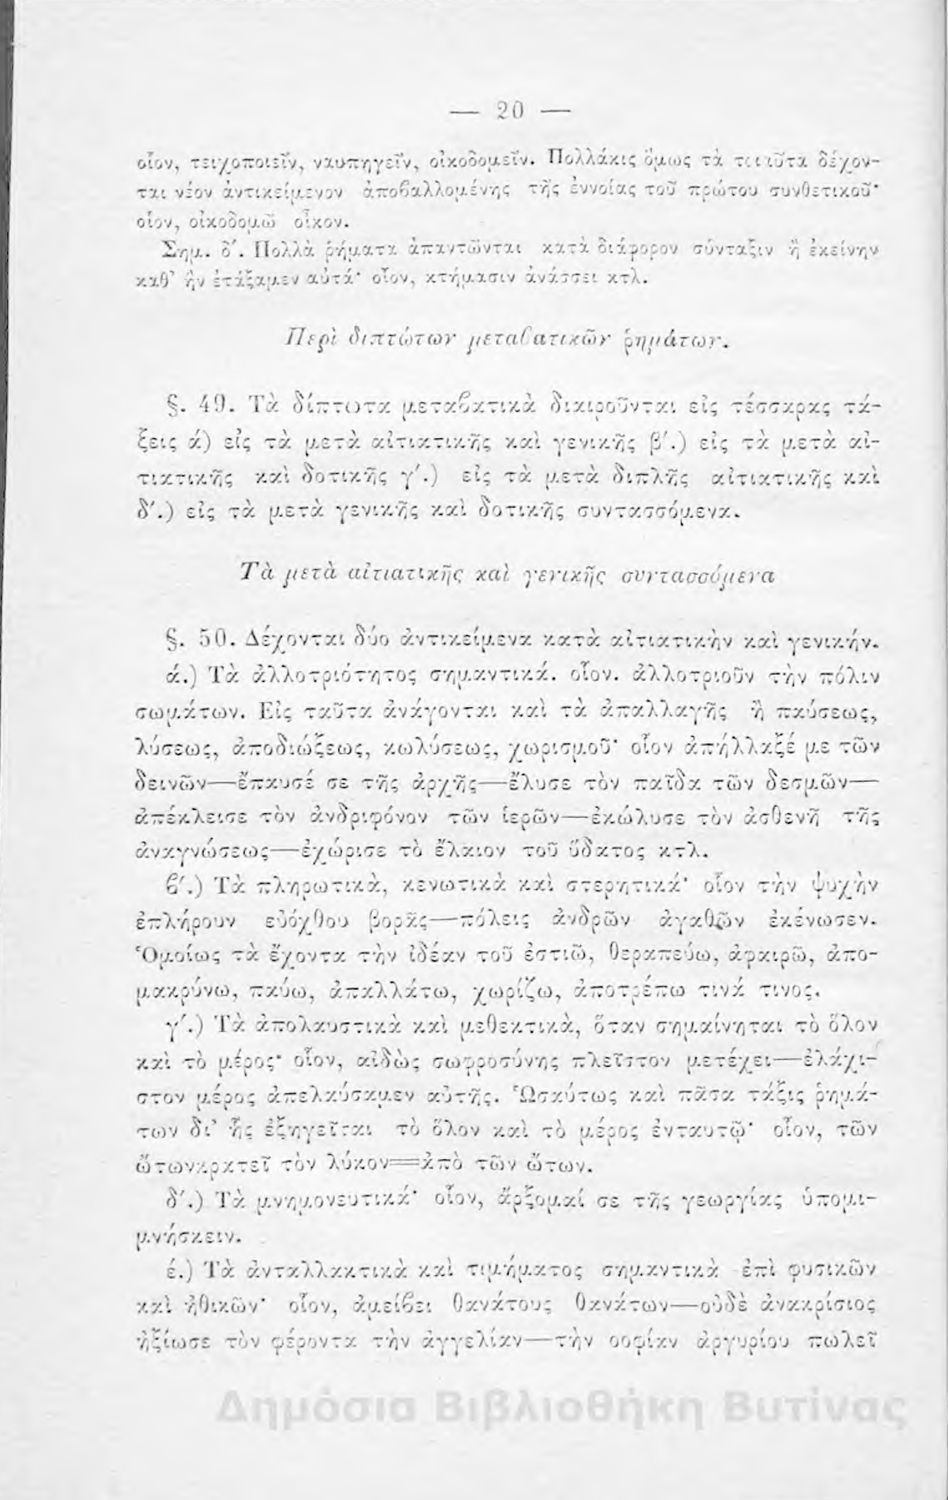 — 20 —
οἷον, τειχοποιεῖν, ναυπηγεῖν, οἰκοδομεῖν. Πολλάκις ὅμως τὰ τοιαῦτα δέχον-
ται νέον ἀντικείμενον ἀποβαλλομένης τῆς ἐννοίας τοῦ πρώτου συνθετικοῦ·
οἷον, οἰκοδομῶ οἶκον.
Σημ. δ'. Πολλὰ ῥήματα ἀπαντῶνται κατὰ διάφορον σύνταξιν ἢ ἐκείνην
καθ' ἣν ἐτάξαμεν αὐτά· οἷον, κτήμασιν ἀνάσσει κτλ.
Περὶ διπτώτων μεταβατικῶν ῥημάτων.
§. 49. Τὰ δίπτωτα μεταβατικὰ διαιροῦνται εἰς τέσσαρας τά-
ξεις ά) εἰς τὰ μετὰ αἰτιατικῆς καὶ γενικῆς β'.) εἰς τὰ μετὰ αἰ-
τιατικῆς καὶ δοτικῆς γ'.) εἰς τὰ μετὰ διπλῆς αἰτιατικῆς καὶ
δ'.) εἰς τὰ μετὰ γενικῆς καὶ δοτικῆς συντασσόμενα.
Τὰ μετὰ αἰτιατικῆς καὶ γενικῆς συντασσόμενα
§. 50. Δέχονται δύο ἀντικείμενα κατὰ αἰτιατικὴν καὶ γενικήν.
ά.) Τὰ ἀλλοτριότητος σημαντικά. οἷον. ἀλλοτριοῦν τὴν πόλιν
σωμάτων. Εἰς ταῦτα ἀνάγονται καὶ τὰ ἀπαλλαγῆς ἢ παύσεως,
λύσεως, ἀποδιώξεως, κωλύσεως, χωρισμοῦ· οἷον ἀπήλλαξέ με τῶν
δεινῶν—ἔπαυσέ σε τῆς ἀρχῆς—ἔλυσε τὸν παῖδα τῶν δεσμῶν—
ἀπέκλεισε τὸν ἀνδριφόνον τῶν ἱερῶν—ἐκώλυσε τὸν ἀσθενῆ τῆς
ἀναγνώσεως—ἐχώρισε τὸ ἔλαιον τοῦ ὕδατος κτλ.
ϐ'.) Τὰ πληρωτικὰ, κενωτικὰ καὶ στερητικά· οἷον τὴν ψυχὴν
ἐπλήρουν εὐόχθου βορᾶς—πόλεις ἀνδρῶν ἀγαθῶν ἐκένωσεν.
Ὁμοίως τὰ ἔχοντα τὴν ἰδέαν τοῦ ἑστιῶ, θεραπεύω, ἀφαιρῶ, ἀπο-
μακρύνω, παύω, ἀπαλλάτω, χωρίζω, ἀποτρέπω τινά τινος.
γ'.) Τὰ ἀπολαυστικὰ καὶ μεθεκτικὰ, ὅταν σημαίνηται τὸ ὅλον
καὶ τὸ μέρος· οἷον, αἰδὼς σωφροσύνης πλεῖστον μετέχει—ἐλάχι-
στον μέρος ἀπελαύσαμεν αὐτῆς. Ὡσαύτως καὶ πᾶσα τάξις ῥημά-
των δι' ἧς ἐξηγεῖται τὸ ὅλον καὶ τὸ μέρος ἐνταυτῷ· οἷον, τῶν
ὤτωνκρατεῖ τὸν λύκον=ἀπὸ τῶν ὤτων.
δ'.) Τὰ μνημονευτικά· οἷον, ἄρξομαί σε τῆς γεωργίας ὑπομι-
μνήσκειν.
έ.) Τὰ ἀνταλλακτικὰ καὶ τιμήματος σημαντικὰ ἐπὶ φυσικῶν
καὶ ἠθικῶν· οἷον, ἀμείϐει θανάτους θανάτων—οὐδὲ ἀνακρίσιος
ἠξίωσε τὸν φέροντα τὴν ἀγγελίαν—τὴν σοφίαν ἀργυρίου πωλεῖ
Δημόσια Βιβλιοθήκη Βυτίνας